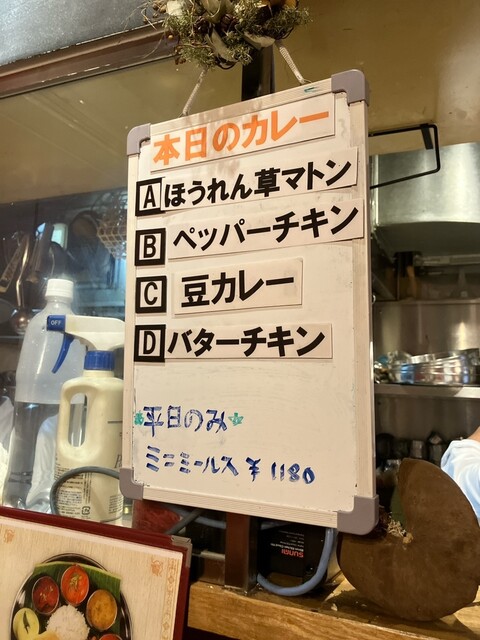 本日のカレー
A ほうれん草マトン
B ペッパーチキン
C 豆カレー
D バターチキン
☆平日のみ☆
ミニミールス ¥1180
OFF
SUNGII